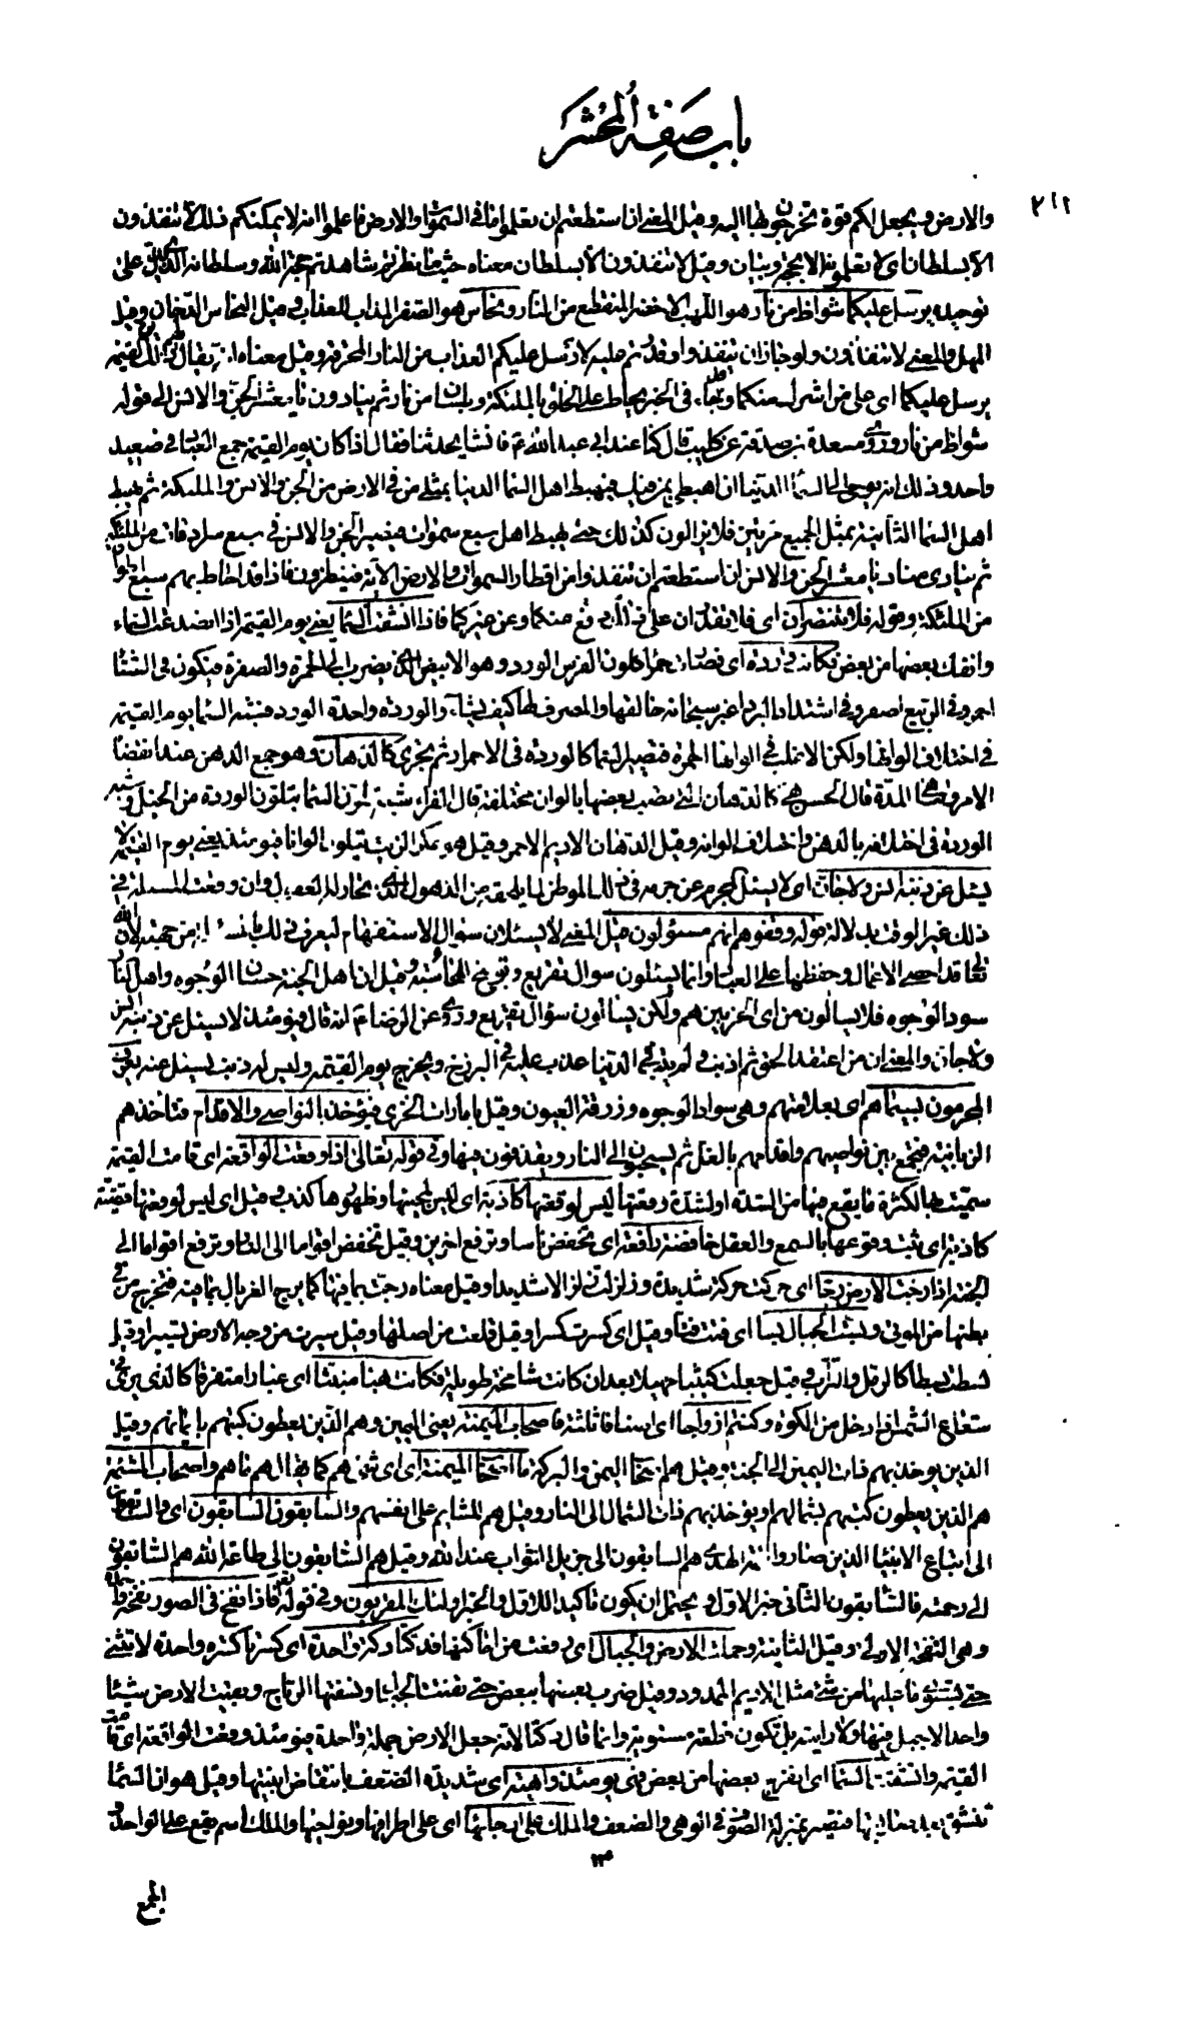 باب صفة المحشر
٢١١
والارض ويجعل لكم قوة تخرجون بها اليه وقيل المعنى ان استطعتم ان تعلموا ما في السموات والارض فاعلموا انه لا يمكنكم ذلك لا تنفذون
الا بسلطان اي لا تعلمونه الا بحجة وبيان وقيل لا تنفذون الا بسلطان معناه حيث ما نظرتم شاهدتم حجة الله وسلطانه الذي يدل على
توحيده يرسل عليكما شواظ من نار هو اللهب الاخضر المنقطع من النار ونحاس هو الصفر المذاب للعذاب وقيل النحاس الدخان وقيل
المهل والمعنى لا تنفذون ولو جاز ان تنفذوا وقدرتم عليه لارسل عليكم العذاب من النار المحرقة وقيل معناه انه يقال لهم ذلك يوم القيمة
يرسل عليكما اي على من اشرك منكما وقد جاء في الخبر يحاط على الخلق بالملئكة وبلسان من نار ثم ينادون يا معشر الجن والانس الى قوله
شواظ من نار وروى مسعدة بن صدقة عن كليب قال كنا عند ابي عبد الله ع فانشا يحدثنا فقال اذا كان يوم القيمة جمع الله العباد في صعيد
واحد وذلك انه يوحى الى السماء الدنيا ان اهبطي بمن فيك فيهبط اهل السماء الدنيا بمثلي من في الارض من الجن والانس والملئكة ثم يهبط
اهل السماء الثانية بمثل الجميع مرتين فلا يزالون كذلك حتى يهبط اهل سبع سموات فيصير الجن والانس في سبع سرادقات من الملئكة
ثم ينادي مناد يا معشر الجن والانس ان استطعتم ان تنفذوا من اقطار السموات والارض الاية فينظرون فاذا قد احاط بهم سبع اطواق
من الملئكة وقوله فلا تنتصران اي فلا تقدران على دفع ذلك عنكما وعن غيركما فاذا انشقت السماء يعني يوم القيمة اذا انصدعت السماء
وانفك بعضها من بعض فكانت وردة اي فصارت حمراء كلون الفرس الورد وهو الابيض الذي يضرب الى الحمرة والصفرة فيكون في الشتاء
احمر وفي الربيع اصفر وفي اشتداد البرد اغبر سبحانه خالقها والمصرف لها كيف يشاء والوردة واحدة الورد فشبه السماء يوم القيمة
في اختلاف الوانها ولكن الاغلب في الوانها الحمرة فتصير السماء كالوردة في الاحمرار ثم تجري كالدهان وهو جمع الدهن عند انقضاء
الامر وتناهي المدة قال الحسن هي كالدهان التي يصب بعضها بالوان مختلفة قال الفراء شبه تلون السماء بتلون الوردة من الخيل وشبه
الوردة في اختلافه بالدهن واختلاف الوانه وقيل الدهان الاديم الاحمر وقيل هو عكر الزيت يتلون الوانا فيومئذ يعني يوم القيمة لا
يسئل عن ذنبه انس ولا جان اي لا يسئل المجرم عن جرمه في ذلك الموطن لما يلحقه من الذهول الذي تحار له العقول وان وقعت المسئلة في
ذلك غير الوقت بدلالة قوله وقفوهم انهم مسئولون وقيل المعنى لا يسئلان سؤال الاستفهام ليعرف ذلك بالمسئلة من جهته لان الله
تعالى قد احصى الاعمال وحفظها على العباد وانما يسئلون سؤال تقريع وتوبيخ للمحاسبة وقيل ان اهل الجنة حسان الوجوه واهل النار
سود الوجوه فلا يسالون من اي الحزبين هم ولكن يسالون سؤال تقريع وروي عن الرضا ع انه قال فيومئذ لا يسئل عن ذنبه انس
ولا جان والمعنى ان من اعتقد الحق ثم اذنب ولم يتب في الدنيا عذب عليه في البرزخ ويخرج يوم القيمة وليس له ذنب يسئل عنه يعرف
المجرمون بسيماهم اي بعلامتهم وهي سواد الوجوه وزرقة العيون وقيل بامارات الخزي فيؤخذ بالنواصي والاقدام فتاخذهم
الزبانية فتجمع بين نواصيهم واقدامهم بالغل ثم يسحبون الى النار ويقذفون فيها وفي قوله تعالى اذا وقعت الواقعة اي قامت القيمة
سميت بها لكثرة ما يقع فيها من الشدة او لشدة وقعتها ليس لوقعتها كاذبة اي ليس لمجيئها وظهورها كذب وقيل اي ليس لوقعتها قضية
كاذبة اي ثبت وقوعها بالسمع والعقل خافضة رافعة اي تخفض ناسا وترفع اخرين وقيل تخفض اقواما الى النار وترفع اقواما الى
الجنة اذا رجت الارض رجا اي حركت حركة شديدة وزلزلت زلزالا شديدا وقيل معناه رجت بما فيها كما يرج الغربال بما فيه فتخرج من في
بطنها من الموتى وبست الجبال بسا اي فتت فتا وقيل اي كسرت كسرا وقيل قلعت من اصلها وقيل سيرت من وجه الارض تسييرا وقيل
بسطت بسطا كالرمل والتراب وقيل جعلت كثيبا مهيلا بعد ان كانت شامخة طويلة فكانت هباء منبثا اي غبارا متفرقا كالذي يرى في
شعاع الشمس اذا دخل من الكوة وكنتم ازواجا اي اصنافا ثلثة فاصحاب الميمنة يعني اليمين وهم الذين يعطون كتبهم بايمانهم وقيل
الذين يؤخذ بهم ذات اليمين الى الجنة وقيل هم اصحاب اليمن والبركة ما اصحاب الميمنة اي اي شئ هم كما يقال هم ما هم واصحاب المشئمة
هم الذين يعطون كتبهم بشمالهم او يؤخذ بهم ذات الشمال الى النار وقيل هم المشائيم على انفسهم والسابقون السابقون اي والسابقون
الى اتباع الانبياء الذين صاروا ائمة الهدى هم السابقون الى جزيل الثواب عند الله وقيل هم السابقون الى طاعة الله هم السابقون
الى رحمته فالسابقون الثاني خبر الاول ويحتمل ان يكون تاكيدا للاول والخبر اولئك المقربون وفي قوله تعالى فاذا نفخ في الصور نفخة واحدة
وهي النفخة الاولى وقيل الثانية وحملت الارض والجبال اي رفعت من اماكنها فدكتا دكة واحدة اي كسرتا كسرة واحدة لا تثنى
حتى يستوي ما عليها من شئ مثل الاديم الممدود وقيل ضرب بعضها ببعض حتى تفتتت الجبال ونسفتها الرياح وبقيت الارض شيئا
واحدا لا جبل فيها ولا رابية بل تكون قطعة مستوية وانما قال دكتا لانه جعل الارض جملة واحدة فيومئذ وقعت الواقعة اي قامت
القيمة وانشقت السماء اي انفرج بعضها من بعض فهي يومئذ واهية اي شديدة الضعف بانتقاض ابنيتها وقيل هو ان السماء
تنشق بعد صلابتها فتصير بمنزلة الصوف في الوهي والضعف والملك على ارجائها اي على اطرافها ونواحيها والملك اسم يقع على الواحد و
الجمع